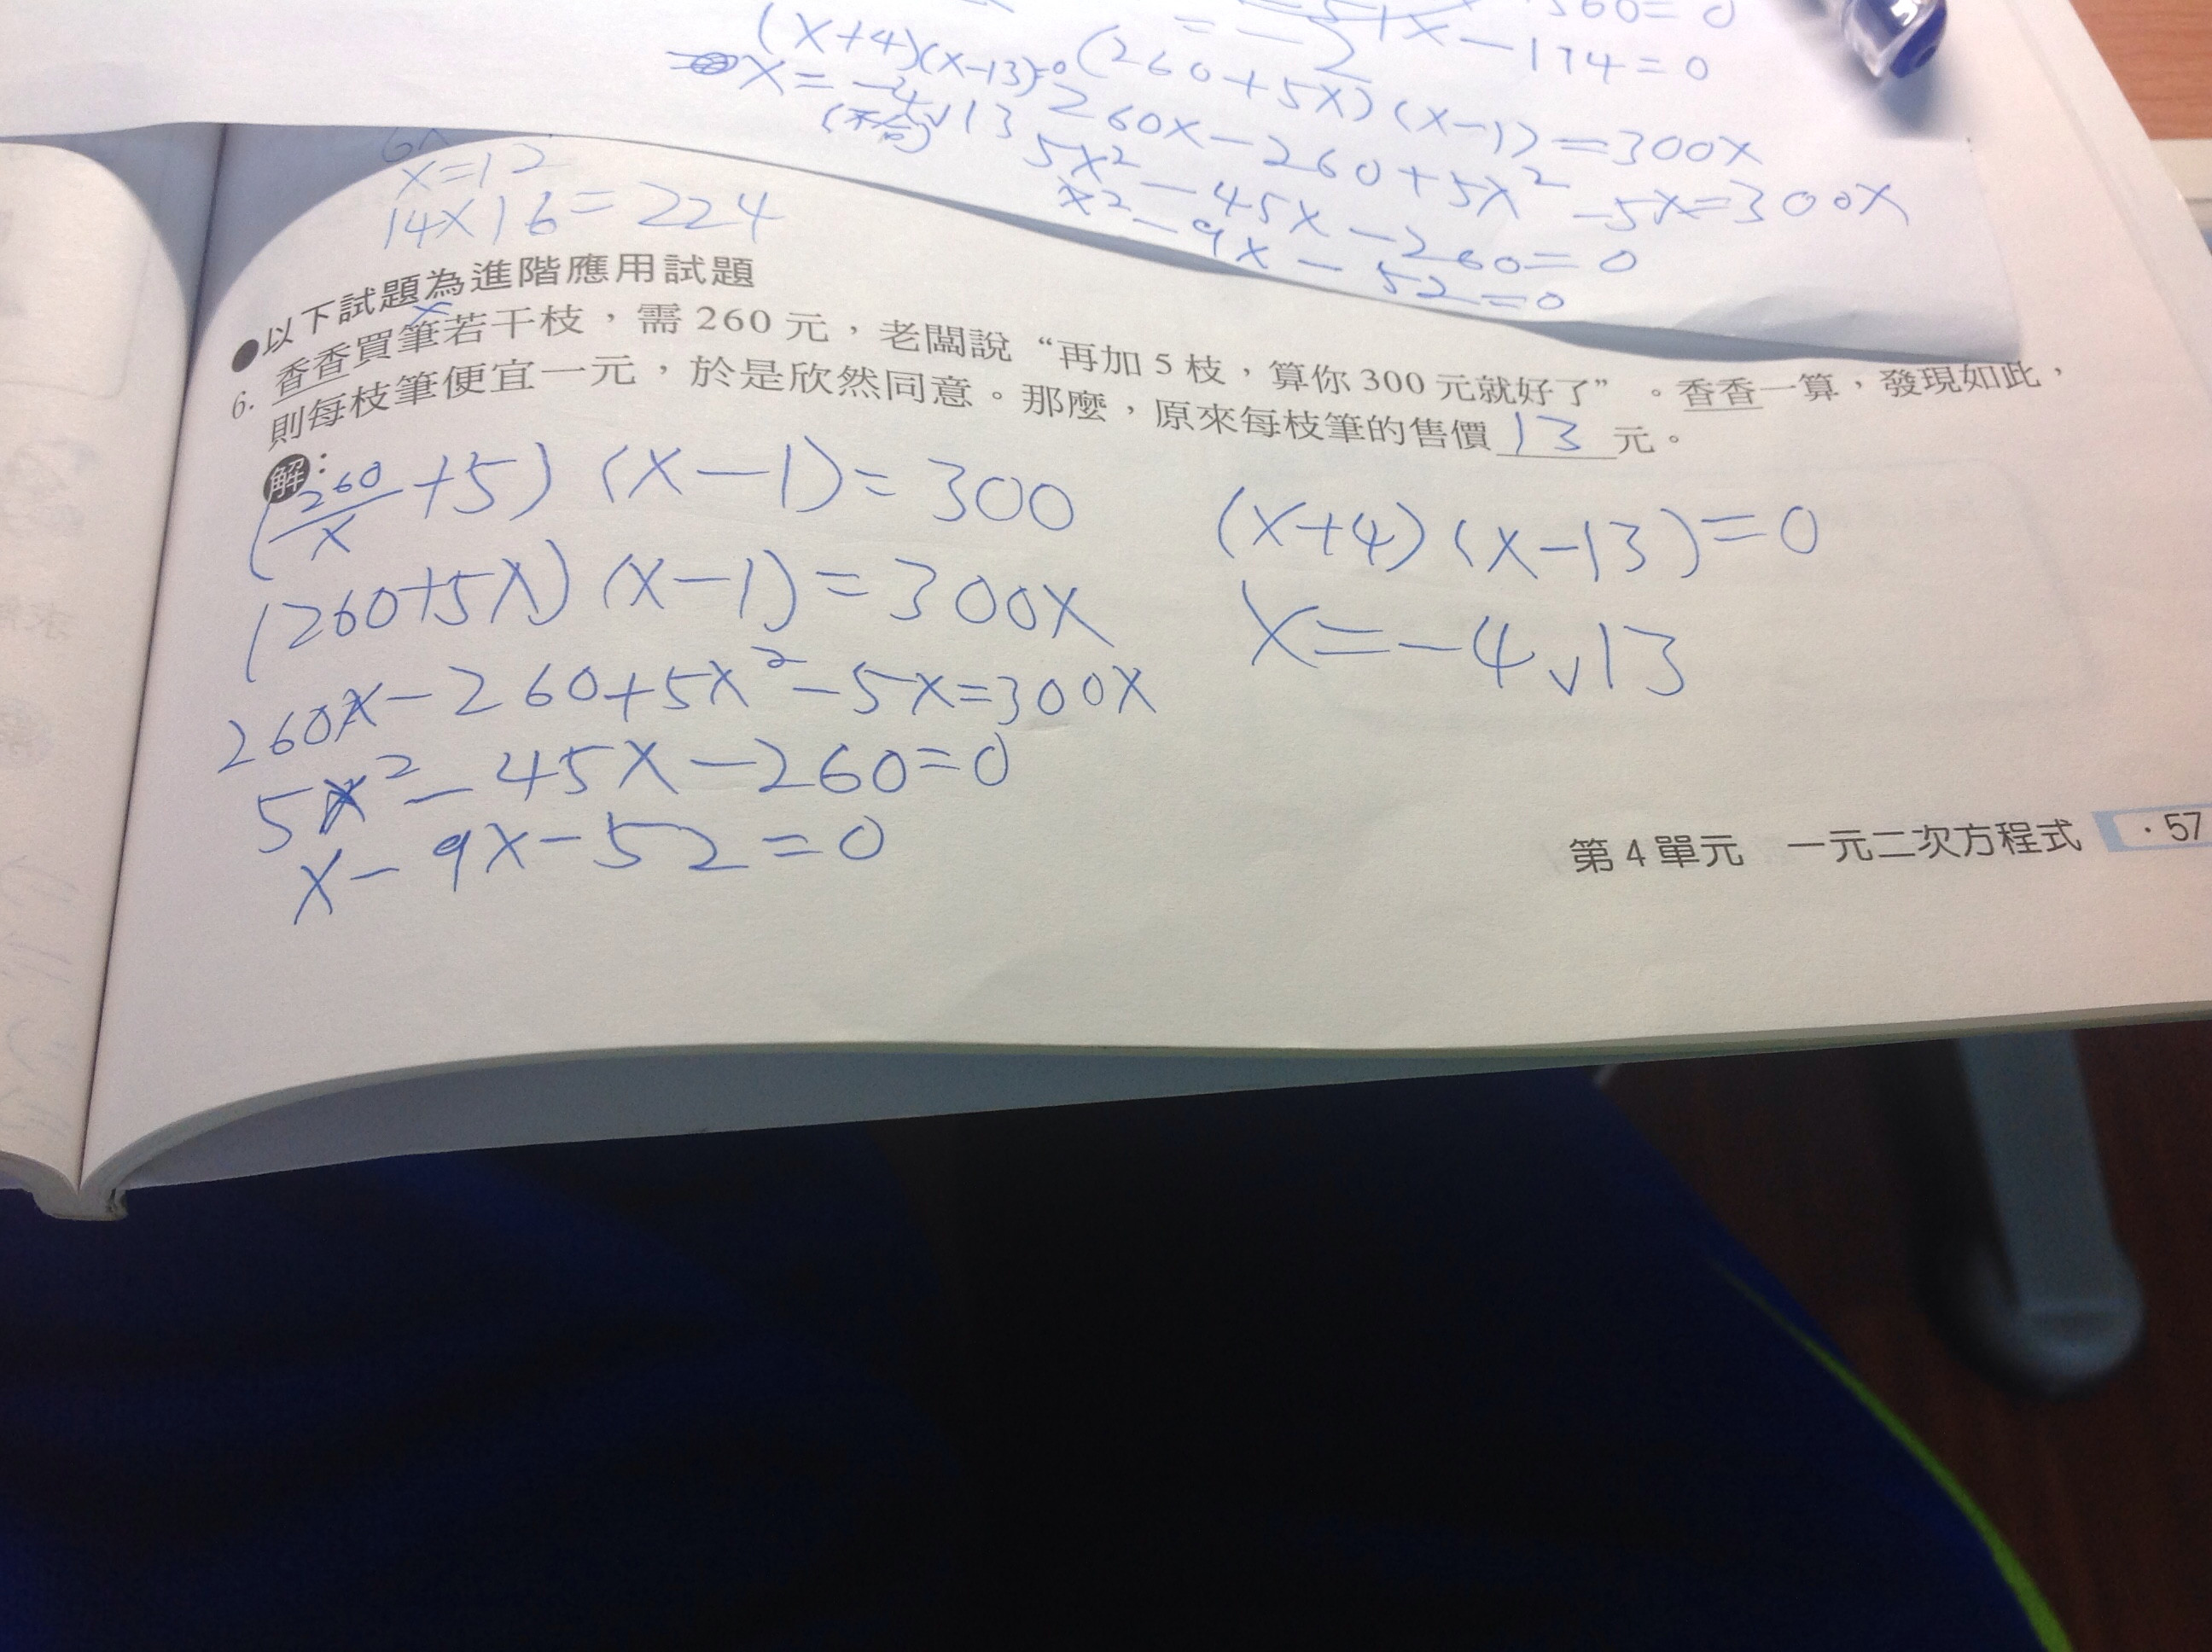 560=0
-174=0
(x+4)(x-13)=0
x=-4√13
(不合)
(260+5x)(x-1)=300x
260x-260+5x²-5x=300x
5x²-45x-260=0
x²-9x-52=0
x=12
14x16=224
●以下試題為進階應用試題
x
6. 香香買筆若干枝，需260元，老闆說“再加5枝，算你300元就好了”。香香一算，發現如此，
則每枝筆便宜一元，於是欣然同意。那麼，原來每枝筆的售價13元。
解：
(260/x+5)(x-1)=300
(260+5x)(x-1)=300x
260x-260+5x²-5x=300x
5x²-45x-260=0
x-9x-52=0
(x+4)(x-13)=0
x=-4√13
第4單元 一元二次方程式 ·57